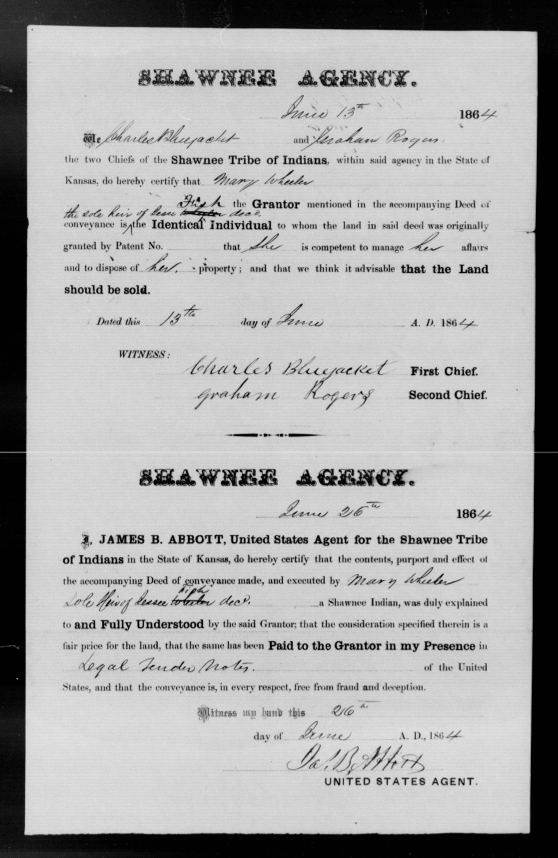 SHAWNEE AGENCY.
June 13th 1864
We Charles Bluejacket and Graham Rogers
the two Chiefs of the Shawnee Tribe of Indians, within said agency in the State of
Kansas, do hereby certify that Mary Wheeler
Fish the Grantor mentioned in the accompanying Deed of
the sole heir of Jesse decd.
conveyance is the Identical Individual to whom the land in said deed was originally
granted by Patent No. that She is competent to manage her affairs
and to dispose of her property; and that we think it advisable that the Land
should be sold.
Dated this 13th day of June A. D. 1864
WITNESS:
Charles Bluejacket First Chief.
Graham Rogers Second Chief.
SHAWNEE AGENCY.
June 26th 1864
I, JAMES B. ABBOTT, United States Agent for the Shawnee Tribe
of Indians in the State of Kansas, do hereby certify that the contents, purport and effect of
the accompanying Deed of conveyance made, and executed by Mary Wheeler
Fish
Sole Heir of Jessee decd. a Shawnee Indian, was duly explained
to and Fully Understood by the said Grantor; that the consideration specified therein is a
fair price for the land, that the same has been Paid to the Grantor in my Presence in
Legal Tender Notes. of the United
States, and that the conveyance is, in every respect, free from fraud and deception.
Witness my hand this 26th
day of June A. D., 1864
Jas. B. Abbott
UNITED STATES AGENT.